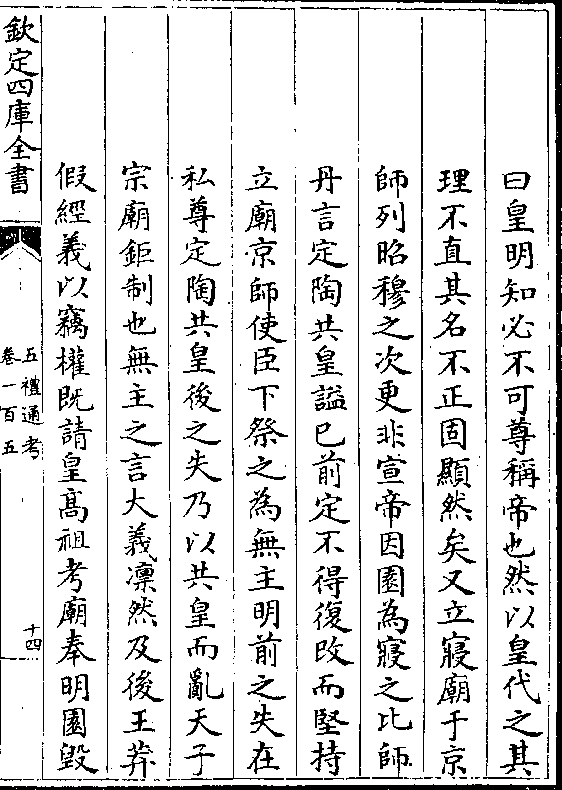 曰皇明知必不可尊稱帝也然以皇代之其
理不直其名不正固顯然矣又立寢廟于京
師列昭穆之次更非宣帝因園為寢之比師
丹言定陶共皇謚已前定不得復改而堅持
立廟京師使臣下祭之為無主明前之失在
私尊定陶共皇後之失乃以共皇而亂天子
宗廟鉅制也無主之言大義凛然及後王莽
假經義以竊權既請皇高祖考廟奉明園毀
欽定四庫全書
五禮通考
卷一百五
十四